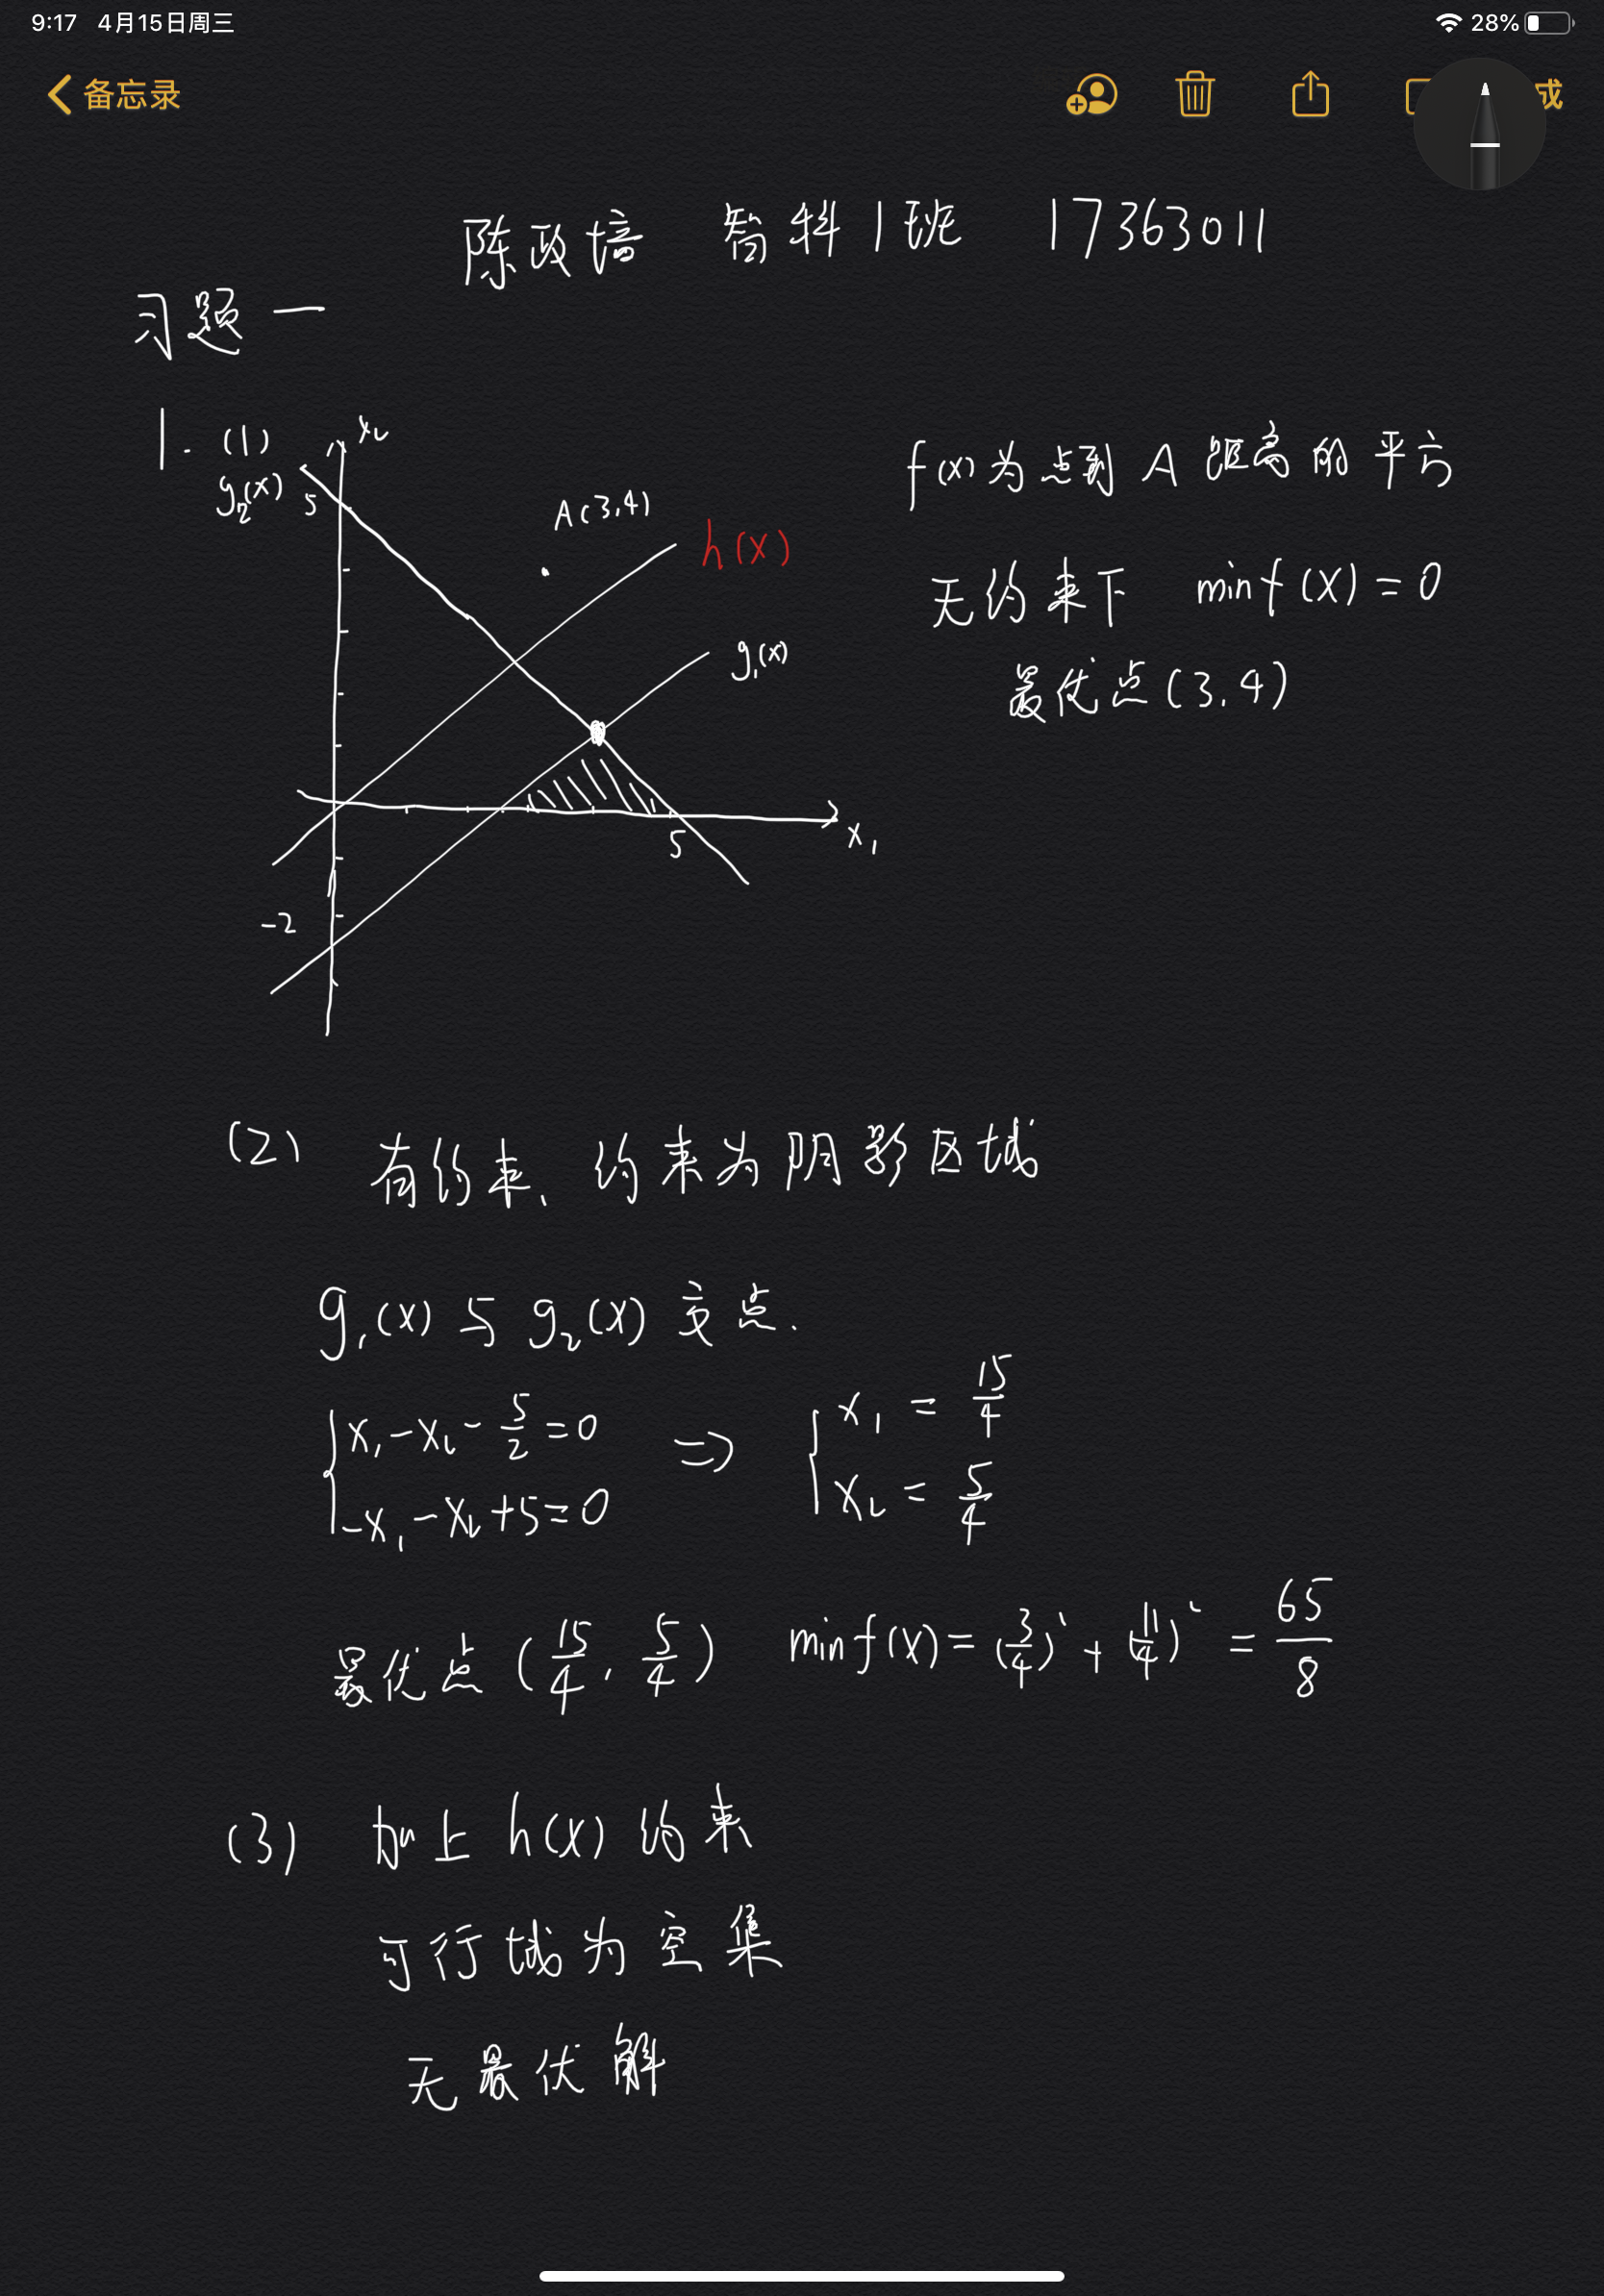 9:17 4月15日周三 28%
备忘录 成
陈政培 智科1班 17363011
习题一
1. (1)
x₂
g₂(x) 5
A(3,4)
h(x)
g₁(x)
5
x₁
-2
f(x)为点到A距离的平方
无约束下 minf(x)=0
最优点(3,4)
(2) 有约束、约束为阴影区域
g₁(x)与g₂(x)交点.
{x₁-x₂-5/2=0 ⇒ {x₁=15/4
-x₁-x₂+5=0 x₂=5/4
最优点(15/4, 5/4) minf(x)=(3/4)²+(11/4)²=65/8
(3) 加上h(x)约束
可行域为空集
无最优解